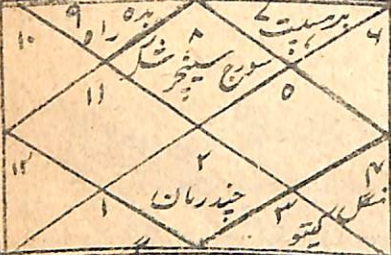 ۹ بدہ راہ
۸
برہسپت ۷
۶
۱۰
سورج سینچر شکر
۱۱
۵
۱۲
۲
چندرمان
۴
۱
۳
منگل کیتو